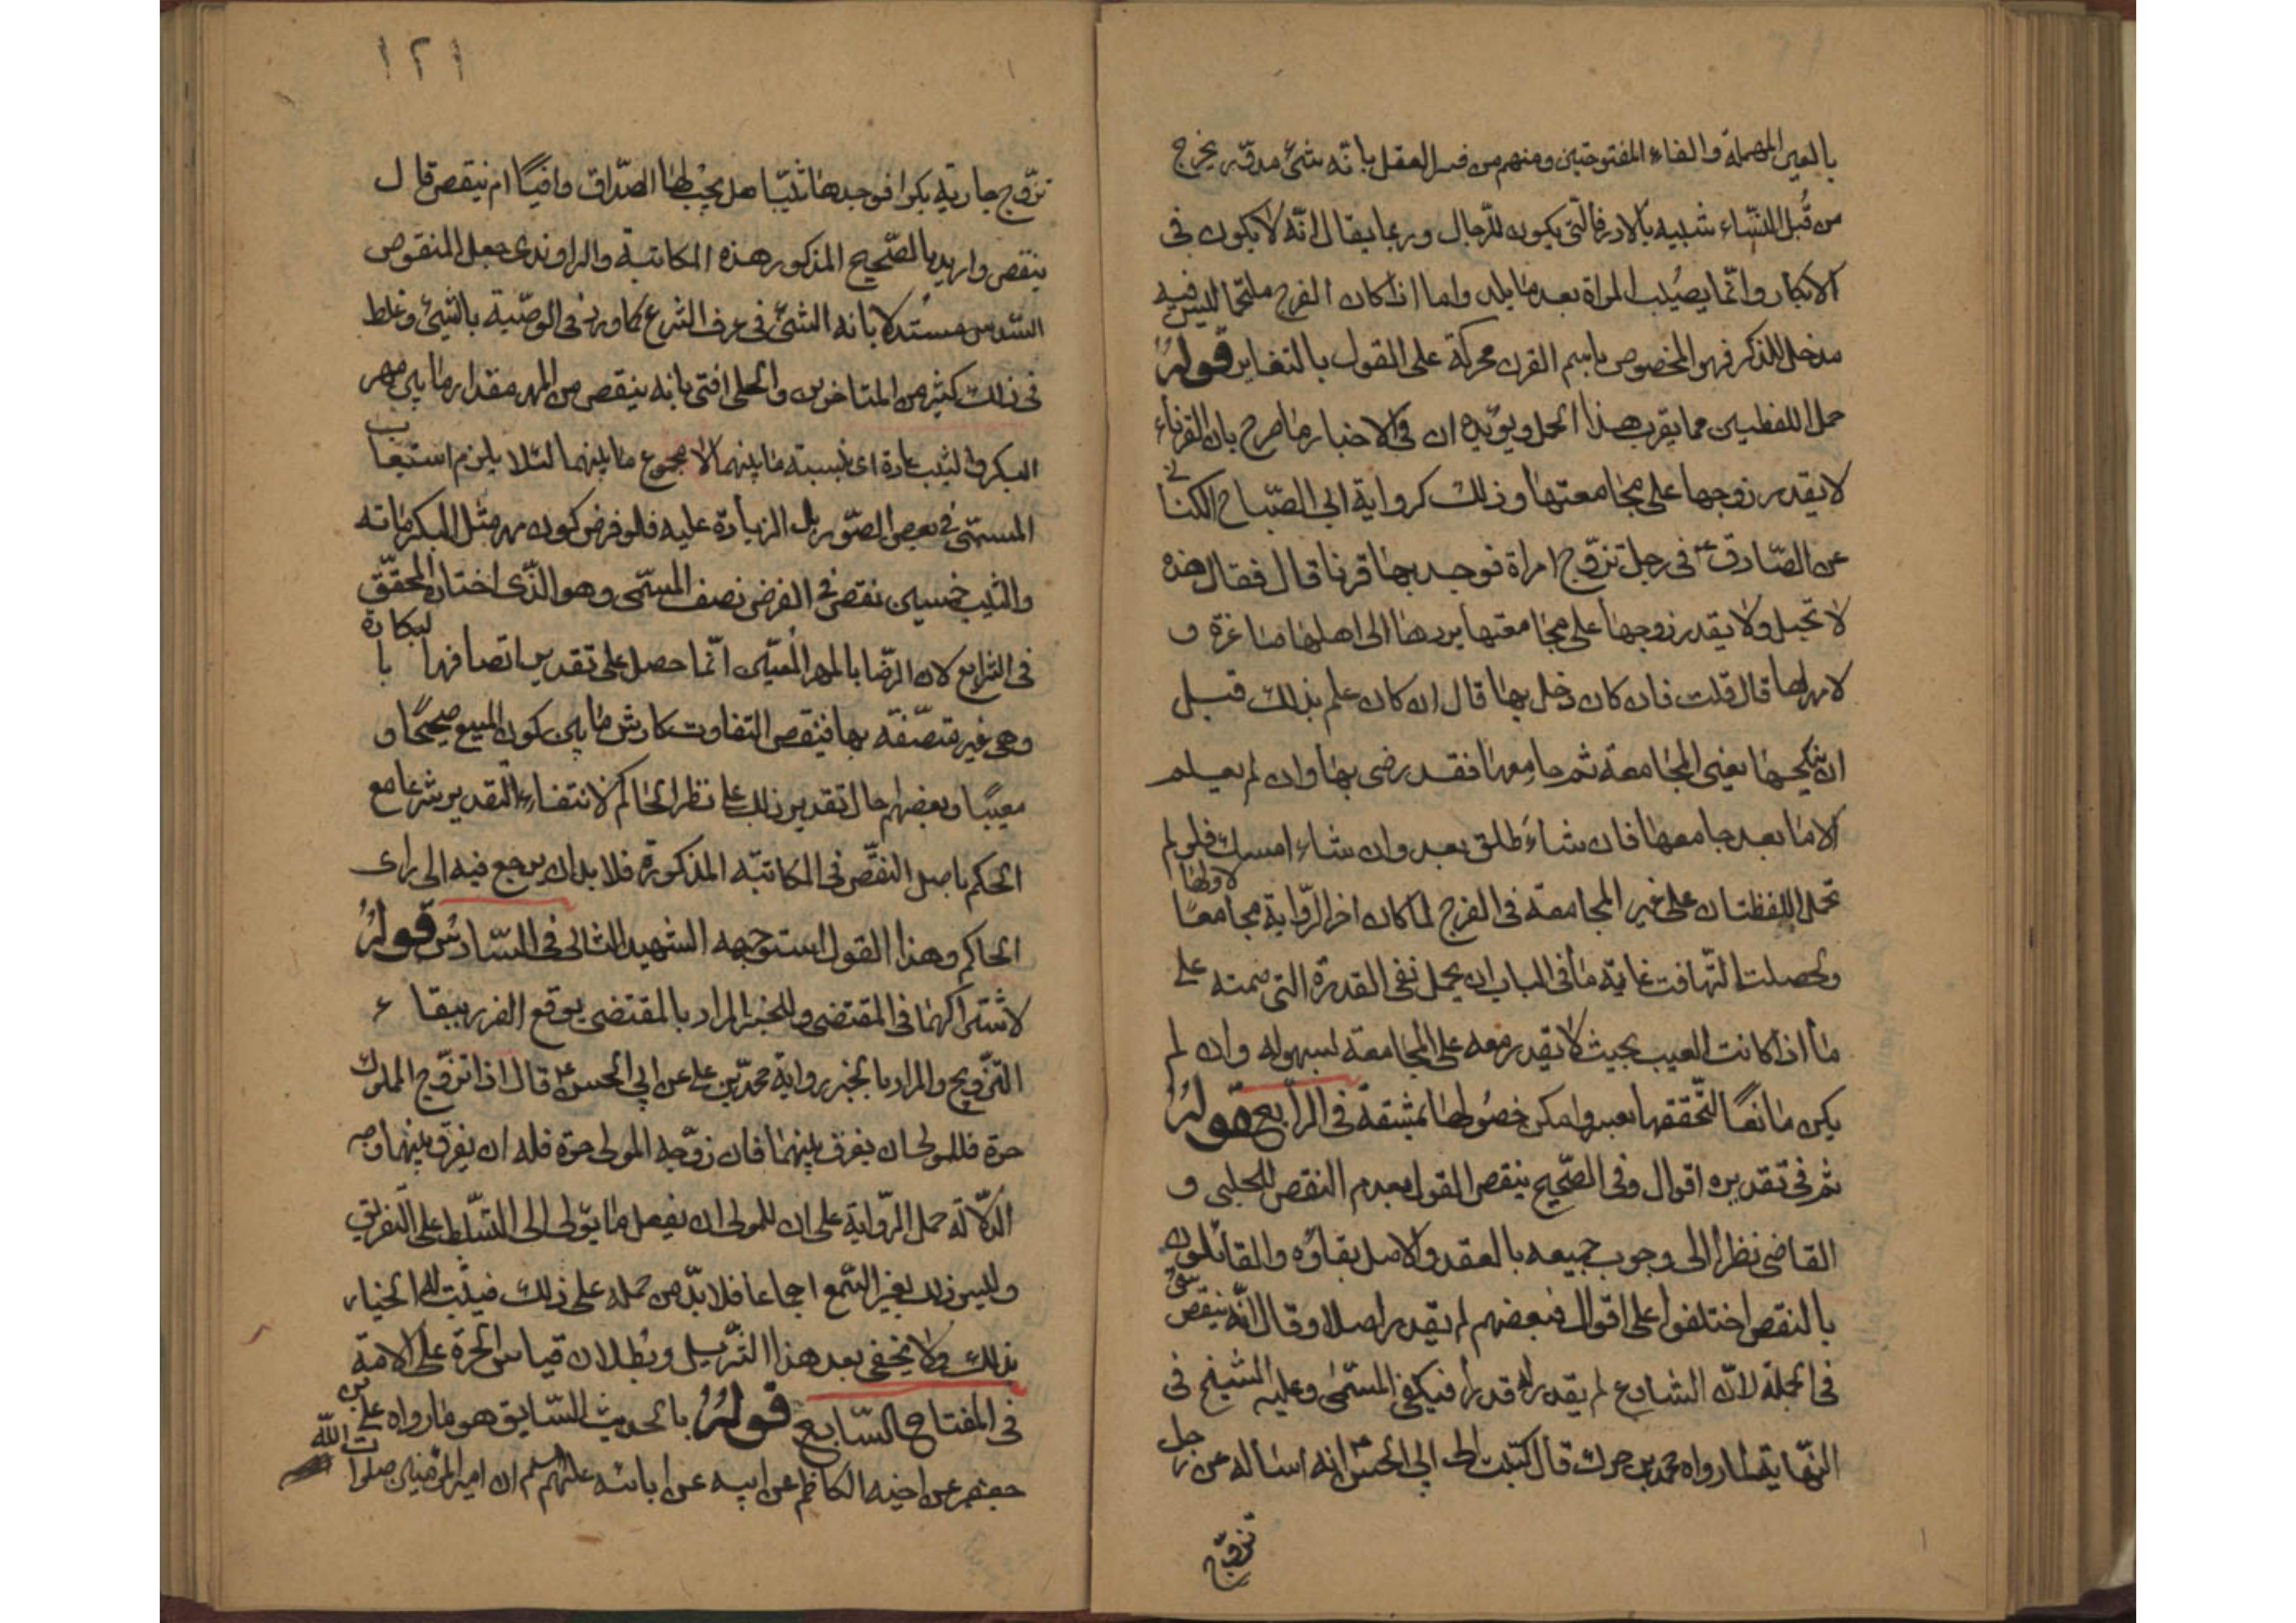 بالعين المهملة والفاء المفتوحتين ومنهم من فسر العفل بانه شئ مدوّر يخرج
من قُبل النسّاء شبيه بالادرة التى يكون للرّجال وربما يقال انّه لا يكون فى
الابكار وانّما يصيب المراة بعد ما يلد واما اذا كان الفرج ملتحما ليس فيه
مدخل للذكر فهو المخصوص باسم القرن محركة على القول بالتغاير قوله
حمل اللفظين مما يقرب هذا الحمل ويؤيده ان فى الاخبار ما صرح بان القرناء
لا يقدر زوجها على مجامعتها وذلك كرواية ابى الصّباح الكنانى
عن الصّادق ع فى رجل تزوّج امراة فوجد بها قرنا قال فقال هذه
لا تحبل ولا يقدر زوجها على مجامعتها يردها الى اهلها صاغرة و
لا مهر لها قال قلت فان كان دخل بها قال ان كان علم بذلك قبل
ان ينكحها يعنى المجامعة ثم جامعها فقد رضى بها وان لم يعلم
الا ما بعد جامعها فان شاء طلق بعد وان شاء امسك فلو لم
تحمل اللفظتان على غير المجامعة فى الفرج لما كان اخر الرّواية مجامعًا لاولها
ولحصلت التّهافت غاية ما فى الباب ان يحمل نفى القدرة التى ضمته على
ما اذا كانت العيب بحيث لا يقدر معه على المجامعة لسهوله وان لم
يكن مانعًا لتحققها بعسر وامكن حصُولها بمشقة فى الرّابع قوله
ثم فى تقديره اقوال وفى الصّحيح ينقص القول بعدم النقص للحلبى و
القاضى نظرا الى وجوب جميعه بالعقد والاصل بقاؤه والقائلون
بالنقص اختلفوا على اقوال فبعضهم لم يقدر اصلا وقال انّه ينقص شئ
فى الجملة لانّ الشارع لم يقدر له قدرا فيكفى المسمّى وعليه الشيخ فى
النّهاية لما رواه محمد بن جزك قال كتبت الى ابى الحسن ع انه اسأله عن رجل
تزوّج
١٢١
تزوّج جارية بكرا فوجدها ثيّبا هل يجبْ لها الصّداق وافيًا ام ينقص قال
ينقص واريد بالصّحيح المذكور هذه المكاتبة والراوندى جعل المنقوص
السّدس مستُدلا بانه الشئ فى عرف الشرع كما ورد فى الوصّية بالشئ وغلط
فى ذلك كثير من المتاخرين والحلى افتى بانه ينقص من المهر مقدار ما بين مهر
البكر والثيب عادة اى بنسبته ما بينهما لا مجموع ما بينهما لئلا يلزم استيعاب
المسمّى فى بعض الصّور بل الزيادة عليه فلو فرض كون مهر مثل البكر مائة
والثيب خمسين نقص فى الفرض نصف المسمّى وهو الذّى اختاره المحقّق
فى الشرايع لان الرّضا بالمهر المُعيّن انّما حصل على تقدير اتصافها بالبكارة
وهى غير متصّفة بها فينقص التفاوت كارش ما بين كون المبيع صحيحًا و
معيبًا وبعضهم احال تقدير ذلك على نظر الحاكم لانتفاء التقدير شرعا مع
الحكم باصل النقّص فى المكاتبّه المذكورة فلا بد ان يرجع فيه الى راى
الحاكم وهذا القول استوجهه الشهيد الثانى فى السّادس قوله
لاشتراكهما فى المقتضى وللخبر المراد بالمقتضى يوقع الضرر ببقاء
التّزويج والمراد بالخبر رواية محمّد بن على عن ابى الحسن ع قال اذا تزوّج المملوك
حرّة فللمولى ان يفرق بينهما فان زوّجه المولى حرّة فله ان يفرّق بينهما وجه
الدّلالة حمل الرّواية على ان للمولى ان يفعل ما يتولى الى التسّلط على التّفريق
وليس ذلك بغير السّمع اجماعا فلا بدّ من حمله على ذلك فيثبت له الخيار
بذلك ولا يخفى بعد هذا التّنزيل وبُطلان قياس الحرّة على الامة
فى المفتاح السّابع قوله بالحديث السّابق هو ما رواه على بن
جعفر عن اخيه الكاظم عن ابيه عن ابائه عليهم السلم ان امير المؤمنين صلوات الله